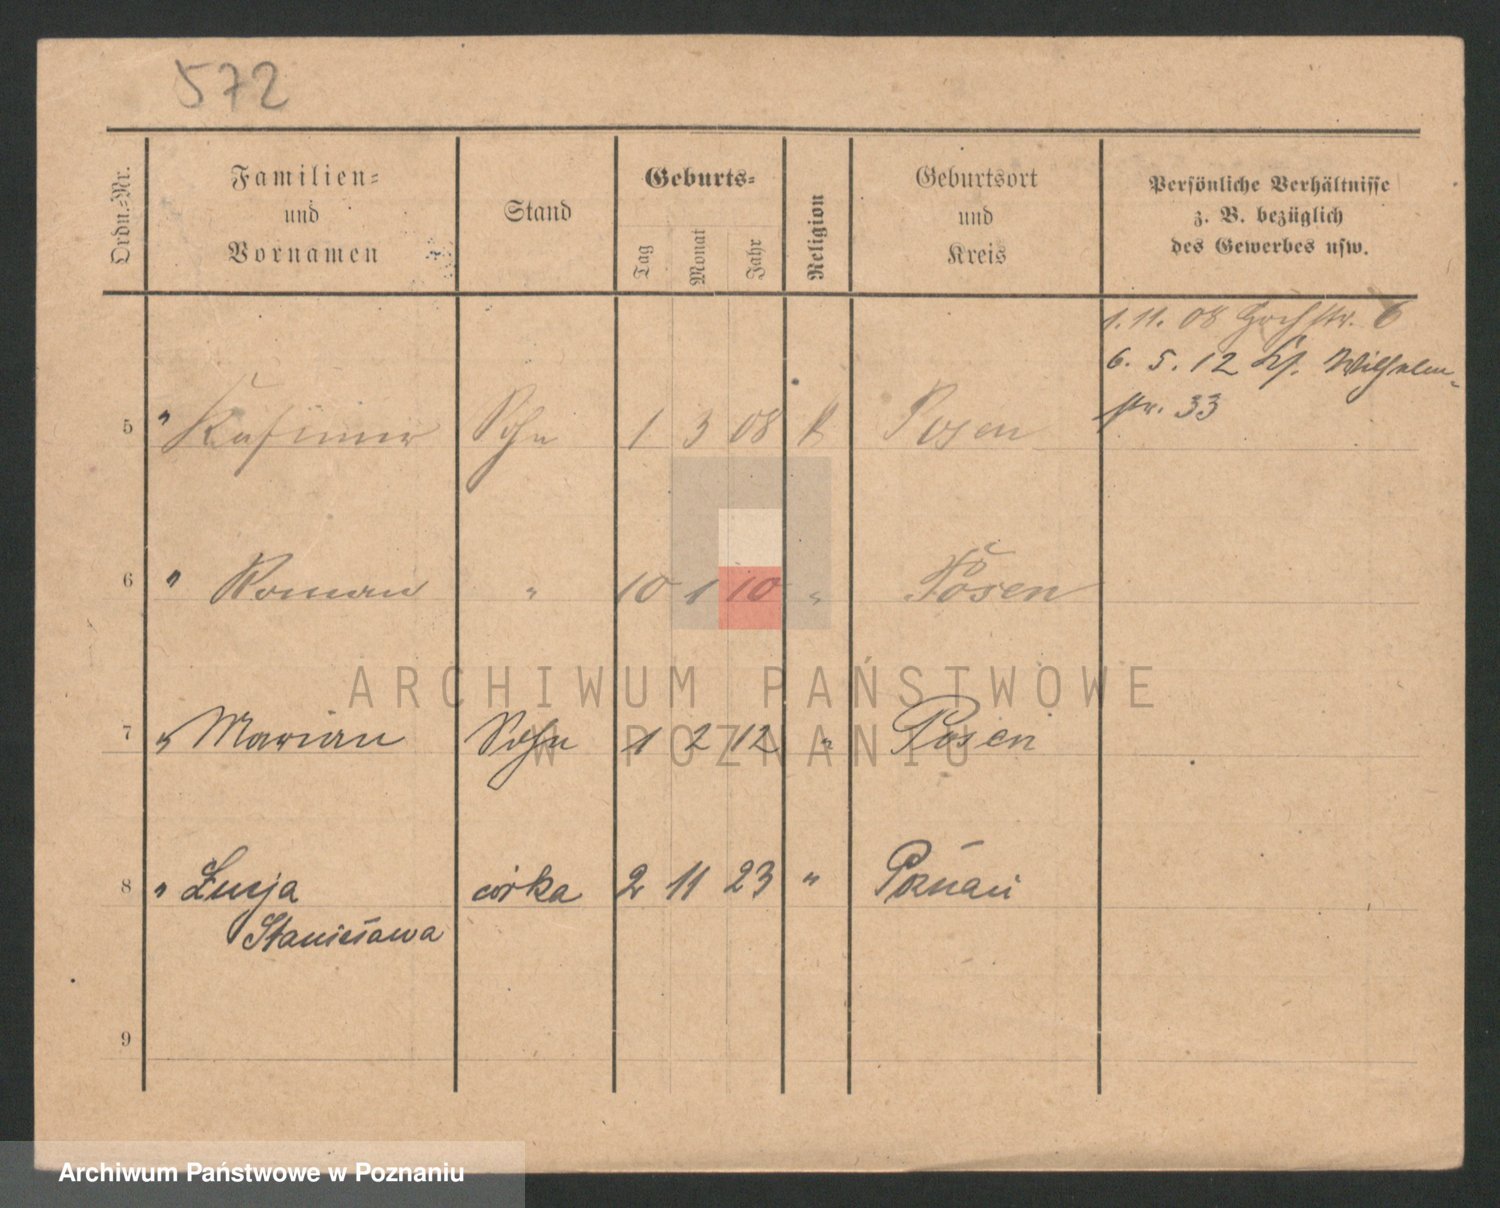 572
Ordn.-Nr.
Familien-
und
Vornamen
Stand
Geburts-
Tag
Monat
Jahr
Religion
Geburtsort
und
Kreis
Persönliche Verhältnisse
z. B. bezüglich
des Gewerbes usw.
1. 11. 08 Hochstr. 6
6. 5. 12 Wilhelm-
str. 33
5 " Kasimir Sohn 1 3 08 k Posen
6 " Roman " 10 1 10 " Posen
7 " Marian Sohn 1 2 12 " Posen
8 " Łucja córka 2 11 23 " Poznań
Stanisława
9
ARCHIWUM PAŃSTWOWE
W POZNANIU
Archiwum Państwowe w Poznaniu